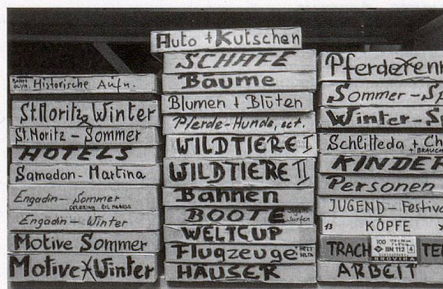 Historische Aufn.
St.Moritz Winter
St.Moritz - Sommer
HOTELS
Samedan - Martina
Engadin - Sommer
Engadin - Winter
Motive Sommer
Motive Winter
Auto + Kutschen
SCHAFE
Bäume
Blumen + Blüten
Pferde-Hunde, ect.
WILDTIERE I
WILDTIERE II
Bahnen
BOOTE
WELTCUP
Flugzeuge
HÄUSER
Pferderenn
Sommer - Sp
Winter - S
Schlitteda + C
KINDE
Personen
JUGEND - Festiva
KÖPFE
TRACH TE
ARBEIT